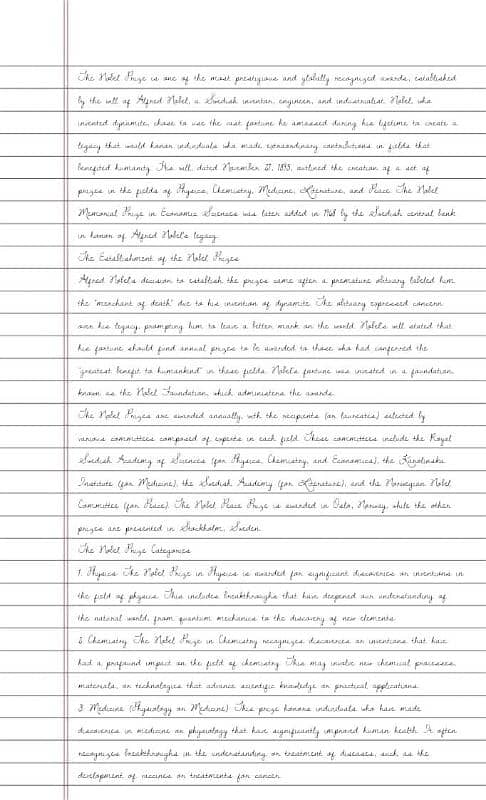 The Nobel Prize is one of the most prestigious and globally recognized awards, established
by the will of Alfred Nobel, a Swedish inventor, engineer, and industrialist. Nobel, who
invented dynamite, chose to use the vast fortune he amassed during his lifetime to create a
legacy that would honor individuals who made extraordinary contributions in fields that
benefited humanity. His will, dated November 27, 1895, outlined the creation of a set of
prizes in the fields of Physics, Chemistry, Medicine, Literature, and Peace. The Nobel
Memorial Prize in Economic Sciences was later added in 1968 by the Swedish central bank
in honor of Alfred Nobel's legacy.
The Establishment of the Nobel Prizes
Alfred Nobel's decision to establish the prizes came after a premature obituary labeled him
the "merchant of death" due to his invention of dynamite. The obituary expressed concern
over his legacy, prompting him to leave a better mark on the world. Nobel's will stated that
his fortune should fund annual prizes to be awarded to those who had conferred the
"greatest benefit to humankind" in these fields. Nobel's fortune was invested in a foundation,
known as the Nobel Foundation, which administers the awards.
The Nobel Prizes are awarded annually, with the recipients (or laureates) selected by
various committees composed of experts in each field. These committees include the Royal
Swedish Academy of Sciences (for Physics, Chemistry, and Economics), the Karolinska
Institute (for Medicine), the Swedish Academy (for Literature), and the Norwegian Nobel
Committee (for Peace). The Nobel Peace Prize is awarded in Oslo, Norway, while the other
prizes are presented in Stockholm, Sweden.
The Nobel Prize Categories
1. Physics: The Nobel Prize in Physics is awarded for significant discoveries or inventions in
the field of physics. This includes breakthroughs that have deepened our understanding of
the natural world, from quantum mechanics to the discovery of new elements.
2. Chemistry: The Nobel Prize in Chemistry recognizes discoveries or inventions that have
had a profound impact on the field of chemistry. This may involve new chemical processes,
materials, or technologies that advance scientific knowledge or practical applications.
3. Medicine (Physiology or Medicine): This prize honors individuals who have made
discoveries in medicine or physiology that have significantly improved human health. It often
recognizes breakthroughs in the understanding or treatment of diseases, such as the
development of vaccines or treatments for cancer.